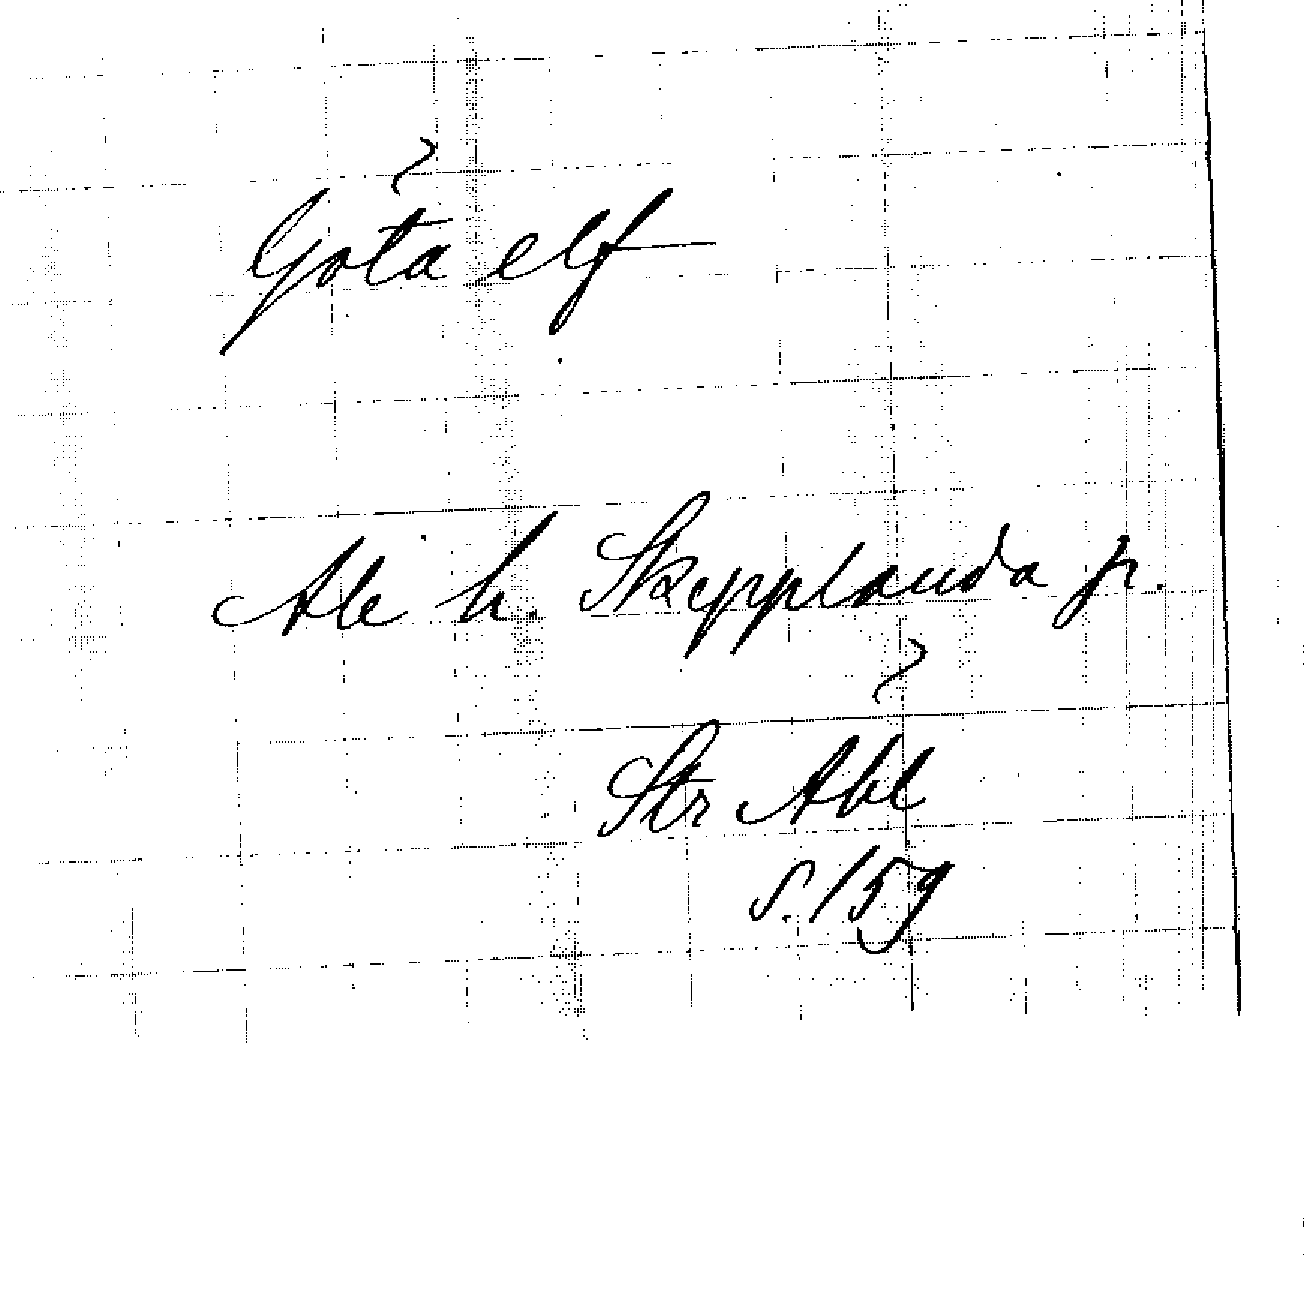 Göta elf
Ale h. Skepplanda jr.
Str Abl
S. 159